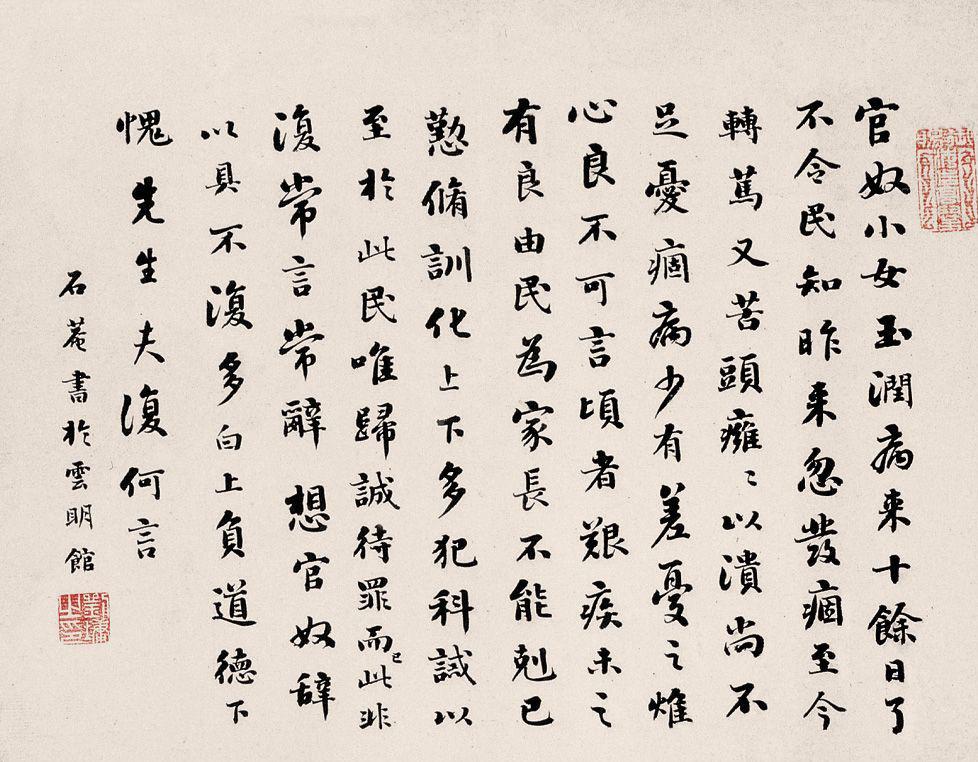 官奴小女玉潤病来十餘日了
不令民知昨来忽發痼至今
轉篤又苦頭癰〻以潰尚不
足憂痼病少有差憂之燋
心良不可言頃者艱疾未之
有良由民為家長不能剋己
懃脩訓化上下多犯科誡以
至於此民唯歸誠待罪而已此非
復常言常辭想官奴辞
以具不復多白上負道德下
愧先生夫復何言
石菴書於雲明館
劉墉